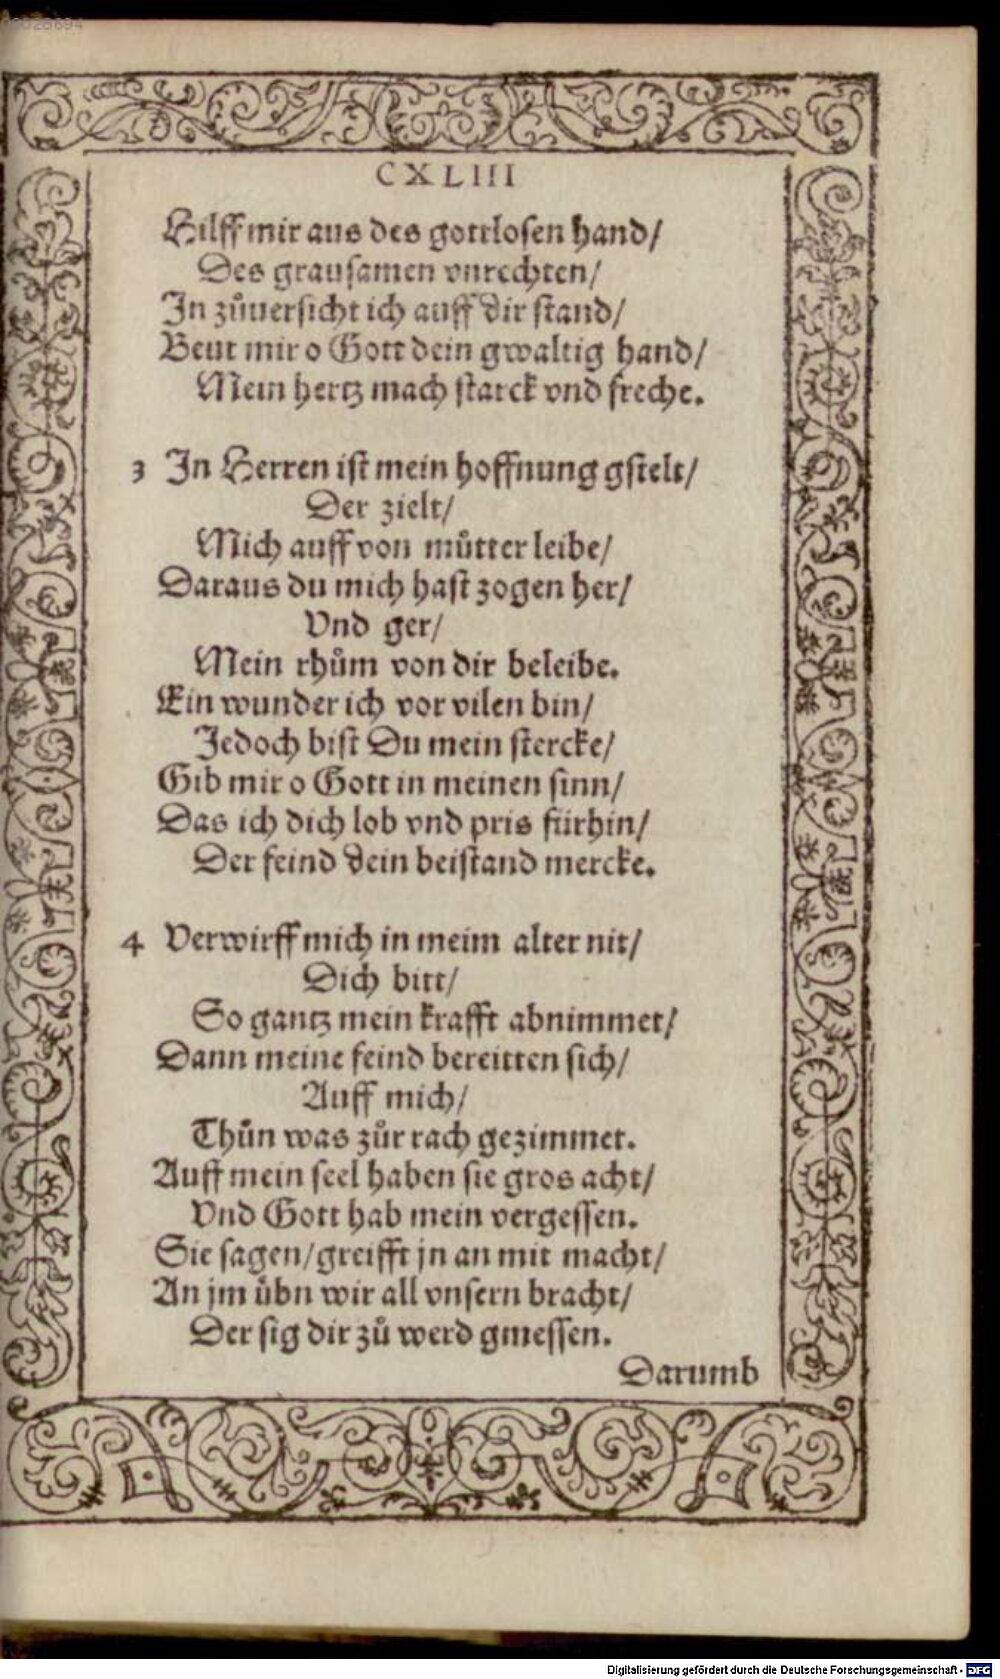 CXLIII
Hilff mir aus des gottlosen hand/
Des grausamen vnrechten/
In zůuersicht ich auff dir stand/
Beut mir o Gott dein gwaltig hand/
Mein hertz mach starck vnd freche.
3 In Herren ist mein hoffnung gstelt/
Der zielt/
Mich auff von můtter leibe/
Daraus du mich hast zogen her/
Vnd ger/
Mein rhům von dir beleibe.
Ein wunder ich vor vilen bin/
Jedoch bist Du mein stercke/
Gib mir o Gott in meinen sinn/
Das ich dich lob vnd pris fürhin/
Der feind dein beistand mercke.
4 Verwirff mich in meim alter nit/
Dich bitt/
So gantz mein krafft abnimmet/
Dann meine feind bereitten sich/
Auff mich/
Thůn was zůr rach gezimmet.
Auff mein seel haben sie gros acht/
Vnd Gott hab mein vergessen.
Sie sagen/greifft jn an mit macht/
An jm übn wir all vnsern bracht/
Der sig dir zů werd gmessen.
Darumb
Digitalisierung gefördert durch die Deutsche Forschungsgemeinschaft - DFG